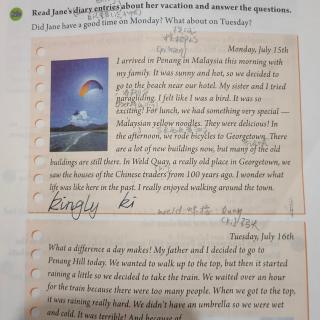 2b Read Jane's diary entries about her vacation and answer the questions.
Did Jane have a good time on Monday? What about on Tuesday?
Monday, July 15th
I arrived in Penang in Malaysia this morning with
my family. It was sunny and hot, so we decided to
go to the beach near our hotel. My sister and I tried
paragliding. I felt like I was a bird. It was so
exciting! For lunch, we had something very special —
Malaysian yellow noodles. They were delicious! In
the afternoon, we rode bicycles to Georgetown. There
are a lot of new buildings now, but many of the old
buildings are still there. In Weld Quay, a really old place in Georgetown, we
saw the houses of the Chinese traders from 100 years ago. I wonder what
life was like here in the past. I really enjoyed walking around the town.
kingly ki
Tuesday, July 16th
What a difference a day makes! My father and I decided to go to
Penang Hill today. We wanted to walk up to the top, but then it started
raining a little so we decided to take the train. We waited over an hour
for the train because there were too many people. When we got to the top,
it was raining really hard. We didn't have an umbrella so we were wet
and cold. It was terrible! And because of